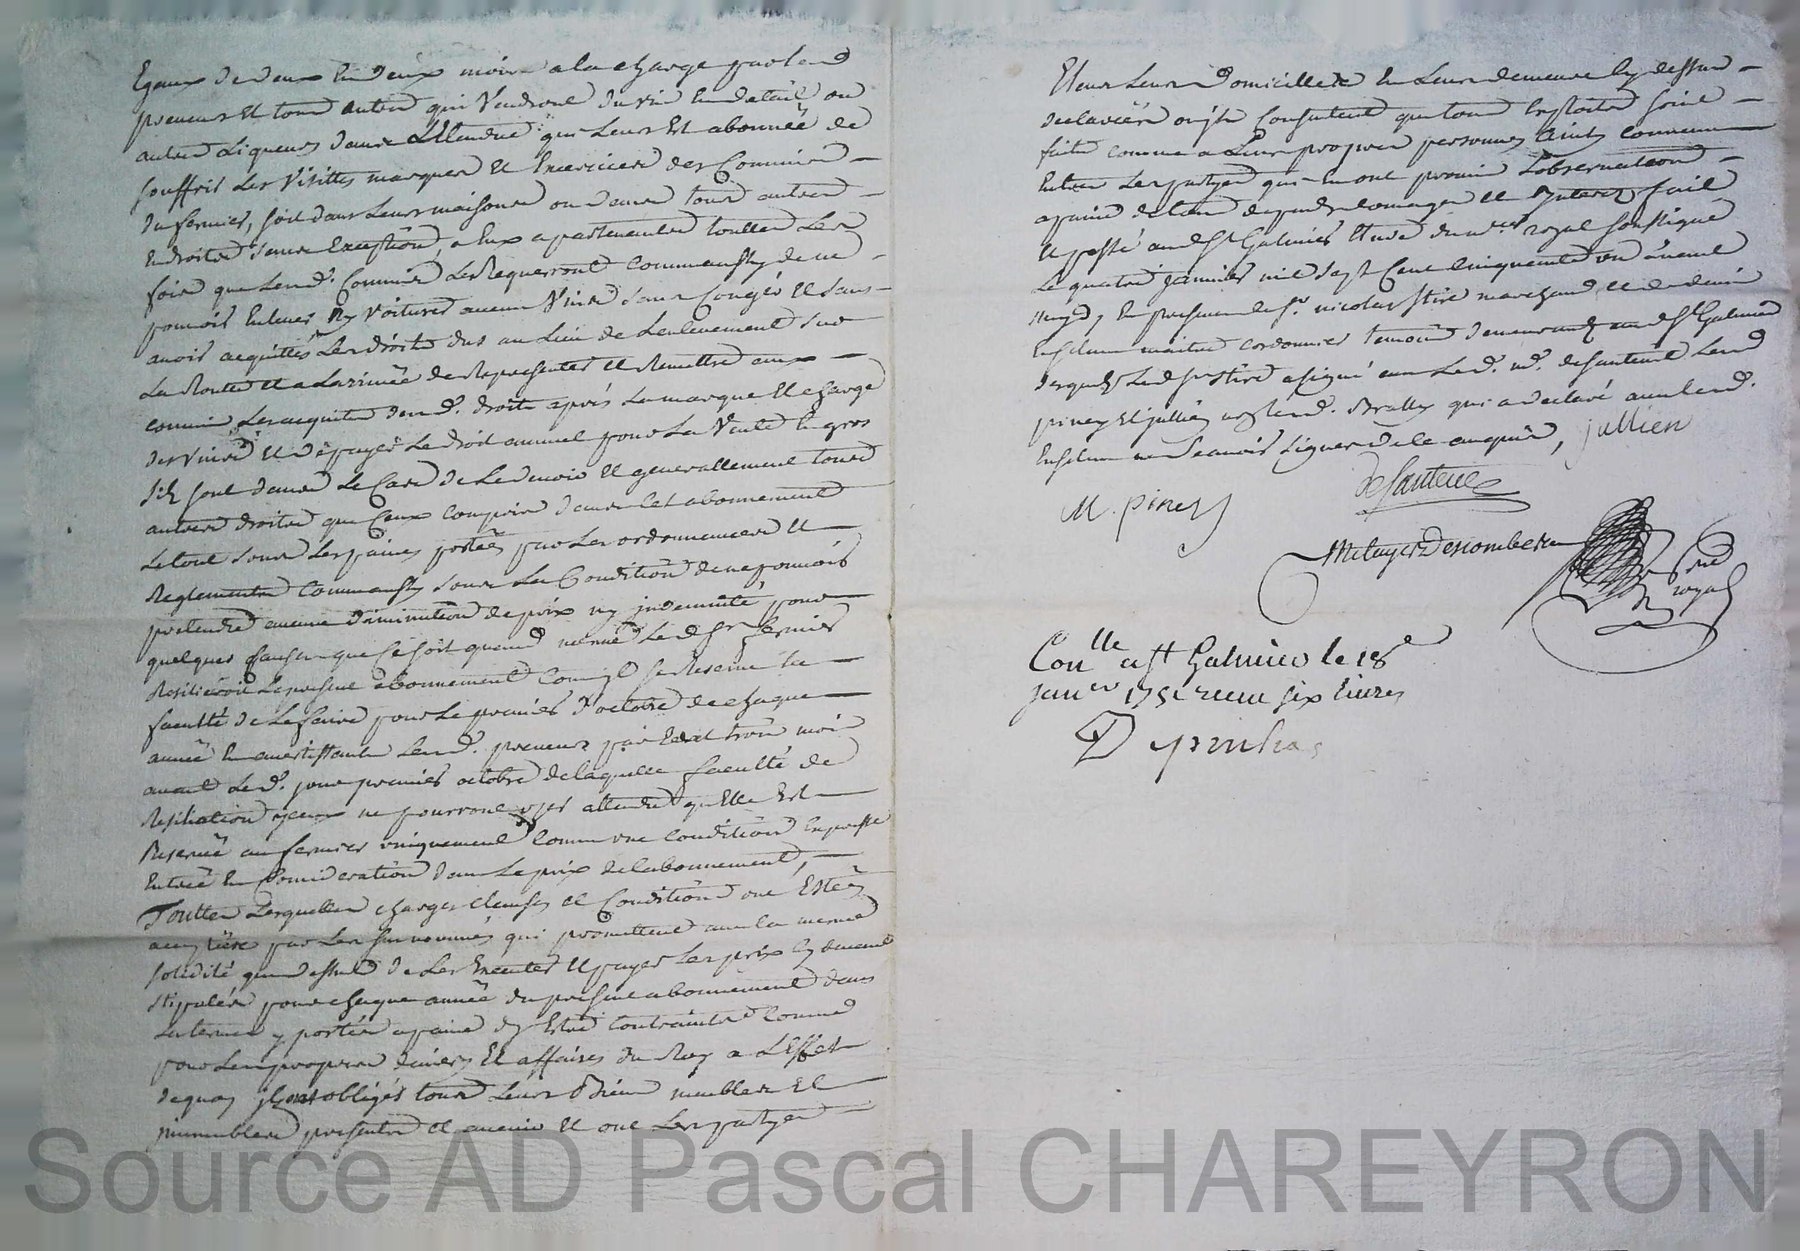 Egaux de deux en deux mois a la charge par lesd
preneurs et tous autres qui vendront du vin en detail ou
autres liqueurs dans l'Etendue qui leurs est abonnée de
souffrir les visittes marques et Exercices des Commis
du fermier, soit dans leurs maisons ou dans tous autres
Endroits sans Exception a Eux apartenantes touttes les
fois que lesd. Commis les Requerront comme aussy de ne
pouvoir Enlever ny voiturer aucun vins sans Congés et sans
avoir acquittés les droits dus au lieu de l'enlevement sur
la Route et a l'arrivée de Representer et Remettre aux
commis les acquits desd. droits aprés la marque et charge
des vins et de payer le droit annuel pour la vente En gros
s'ils sont dans le Cas de le devoir et generallement tous
autres droits que Ceux compris dans cet abonnement
le tout sous les paines portées par les ordonnances et
Reglements comme aussy sous la Condition de ne pouvoir
pretendre aucune diminution de prix ny indemnité, pour
quelques Causes que ce soit quand même led sr fermier
Resilieroit le present abonnement comme il se Reserve la
faculté de le faire pour le premier d'octobre de chaque
année En avertissant lesd. preneurs par Ecrit trois mois
avant led. jour premier octobre de laquelle faculté de
Resiliation yceux ne pourront user attendu qu'Elle Est
Reservée au fermier uniquement comme une condition Expresse
Entrée En Consideration dans le prix de l'abonnement,
Touttes lesquelles charges clauses et Conditions ont Estées
acceptées par les sus nommés qui promettent sous la meme
solidité que dessus de les Executer et payer les prix cy devant
stipulés pour chaque année du present abonnement dans
les termes y portés a paine d'y Estre contraints comme
pour les propres deniers Et affaires du Roy a l'Effet
de quoy ils ont obligés tous leurs Biens meubles et
immeubles presents et avenir et ont les partyes
Eleus leurs domicilles En leurs demeures cy dessus
declarées ou ils consentent que tous Exploits soient
faits comme a leurs propres personnes Ainsy convenu
Entre les partyes qui En ont promis l'observation
a paine de tous depends domages et Interets fait
et passé aud St Galmier Etude du nre royal soussigné
le quatre janvier mil sept cent cinquante un avant
midy, En presence de sr nicolas stire marchand et de denis
maitre cordonnier temoins demeurants aud St Galmier
desquels led sr stire a signé avec led. sr. desanteul lesd
piney Et jullien non led. Bratty qui a declaré avec led.
ne scavoir signer de ce enquis, jullien
M. piney
desanteul
Metayer Descombes
nre
royal
Conlle a St Galmier le 18e
janer 1751 recu six livres
Depinhas
Source AD Pascal CHAREYRON